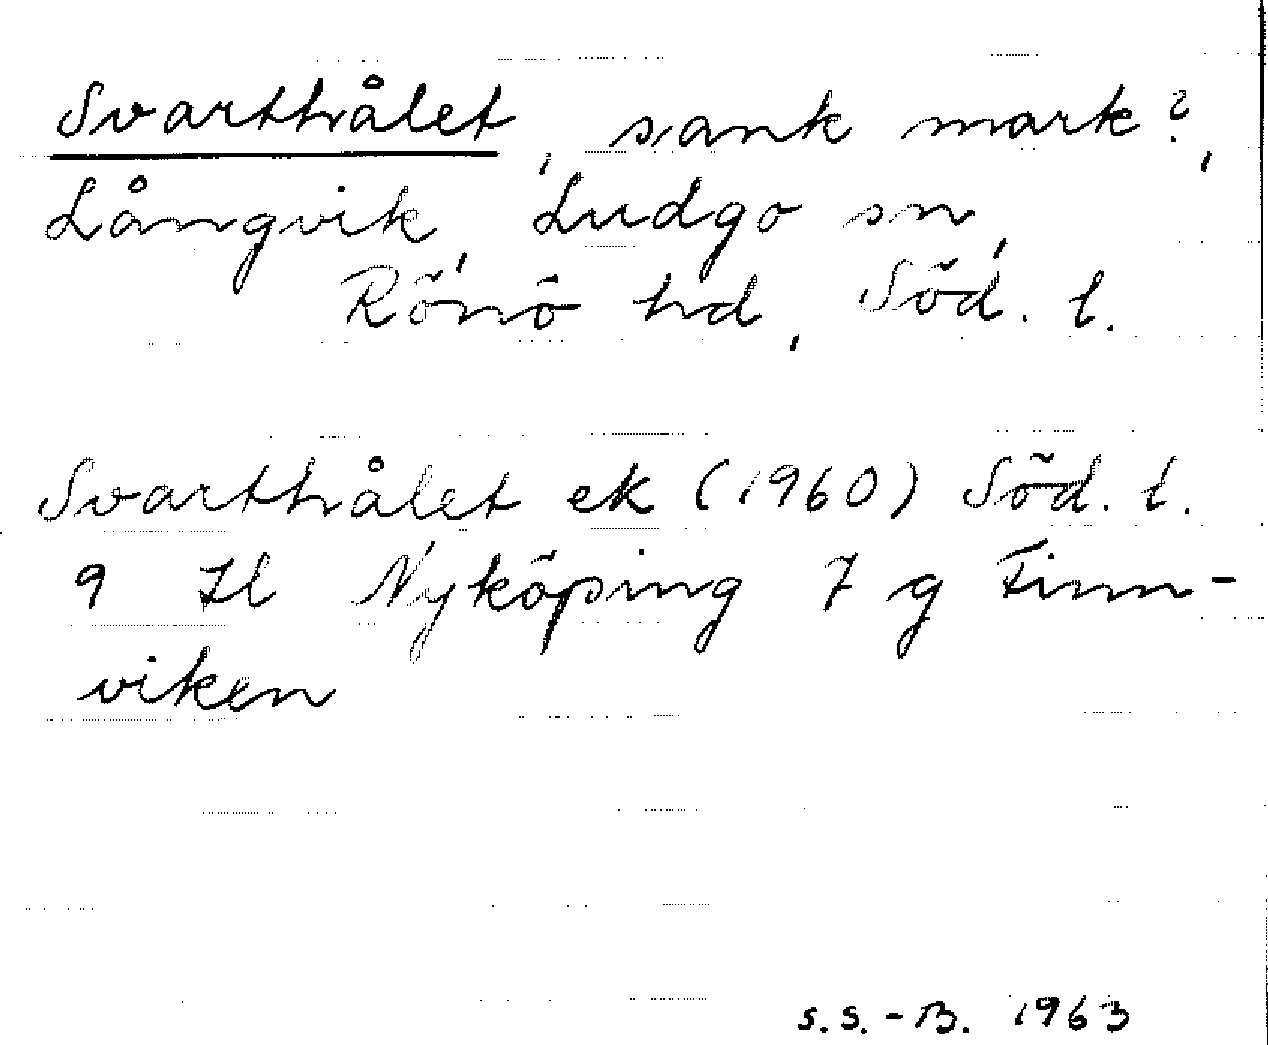 Svarthålet, sank mark?,
Långvik, Ludgo sn,
Rönö hd, Söd. l.
Svarthålet ek (1960) Söd. l.
9 Il Nyköping 7 g Finn-
viken
S.S.-B. 1963